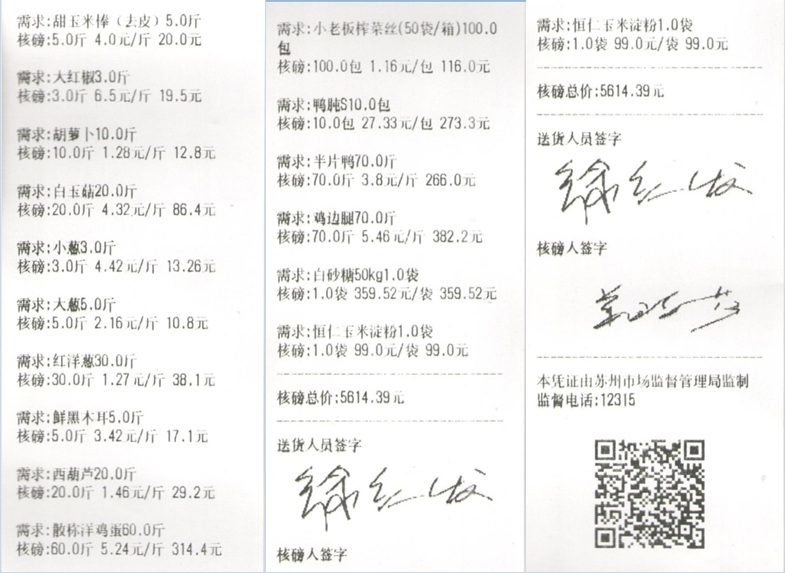 需求:甜玉米棒（去皮）5.0斤
核磅:5.0斤 4.0元/斤 20.0元
需求:大红椒3.0斤
核磅:3.0斤 6.5元/斤 19.5元
需求:胡萝卜10.0斤
核磅:10.0斤 1.28元/斤 12.8元
需求:白玉菇20.0斤
核磅:20.0斤 4.32元/斤 86.4元
需求:小葱3.0斤
核磅:3.0斤 4.42元/斤 13.26元
需求:大葱5.0斤
核磅:5.0斤 2.16元/斤 10.8元
需求:红洋葱30.0斤
核磅:30.0斤 1.27元/斤 38.1元
需求:鲜黑木耳5.0斤
核磅:5.0斤 3.42元/斤 17.1元
需求:西葫芦20.0斤
核磅:20.0斤 1.46元/斤 29.2元
需求:散称洋鸡蛋60.0斤
核磅:60.0斤 5.24元/斤 314.4元
需求:小老板榨菜丝(50袋/箱)100.0
包
核磅:100.0包 1.16元/包 116.0元
需求:鸭肫S10.0包
核磅:10.0包 27.33元/包 273.3元
需求:半片鸭70.0斤
核磅:70.0斤 3.8元/斤 266.0元
需求:鸡边腿70.0斤
核磅:70.0斤 5.46元/斤 382.2元
需求:白砂糖50kg1.0袋
核磅:1.0袋 359.52元/袋 359.52元
需求:恒仁玉米淀粉1.0袋
核磅:1.0袋 99.0元/袋 99.0元
核磅总价:5614.39元
送货人员签字
核磅人签字
需求:恒仁玉米淀粉1.0袋
核磅:1.0袋 99.0元/袋 99.0元
核磅总价:5614.39元
送货人员签字
核磅人签字
本凭证由苏州市场监督管理局监制
监督电话:12315